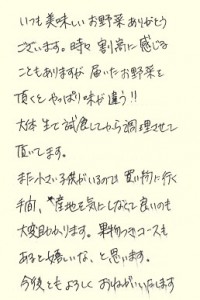 いつも美味しいお野菜ありがとう
ございます。時々割高に感じる
こともありますが届いたお野菜を
頂くと、やっぱり味が違う!!
大体生で試食してから調理させて
頂いてます。
まだ小さい子供がいるので買い物に行く
手間、産地を気にしなくて良いのも
大変助かります。果物つきコースも
あると嬉しいな、と思います。
今後ともよろしくおねがいいたします